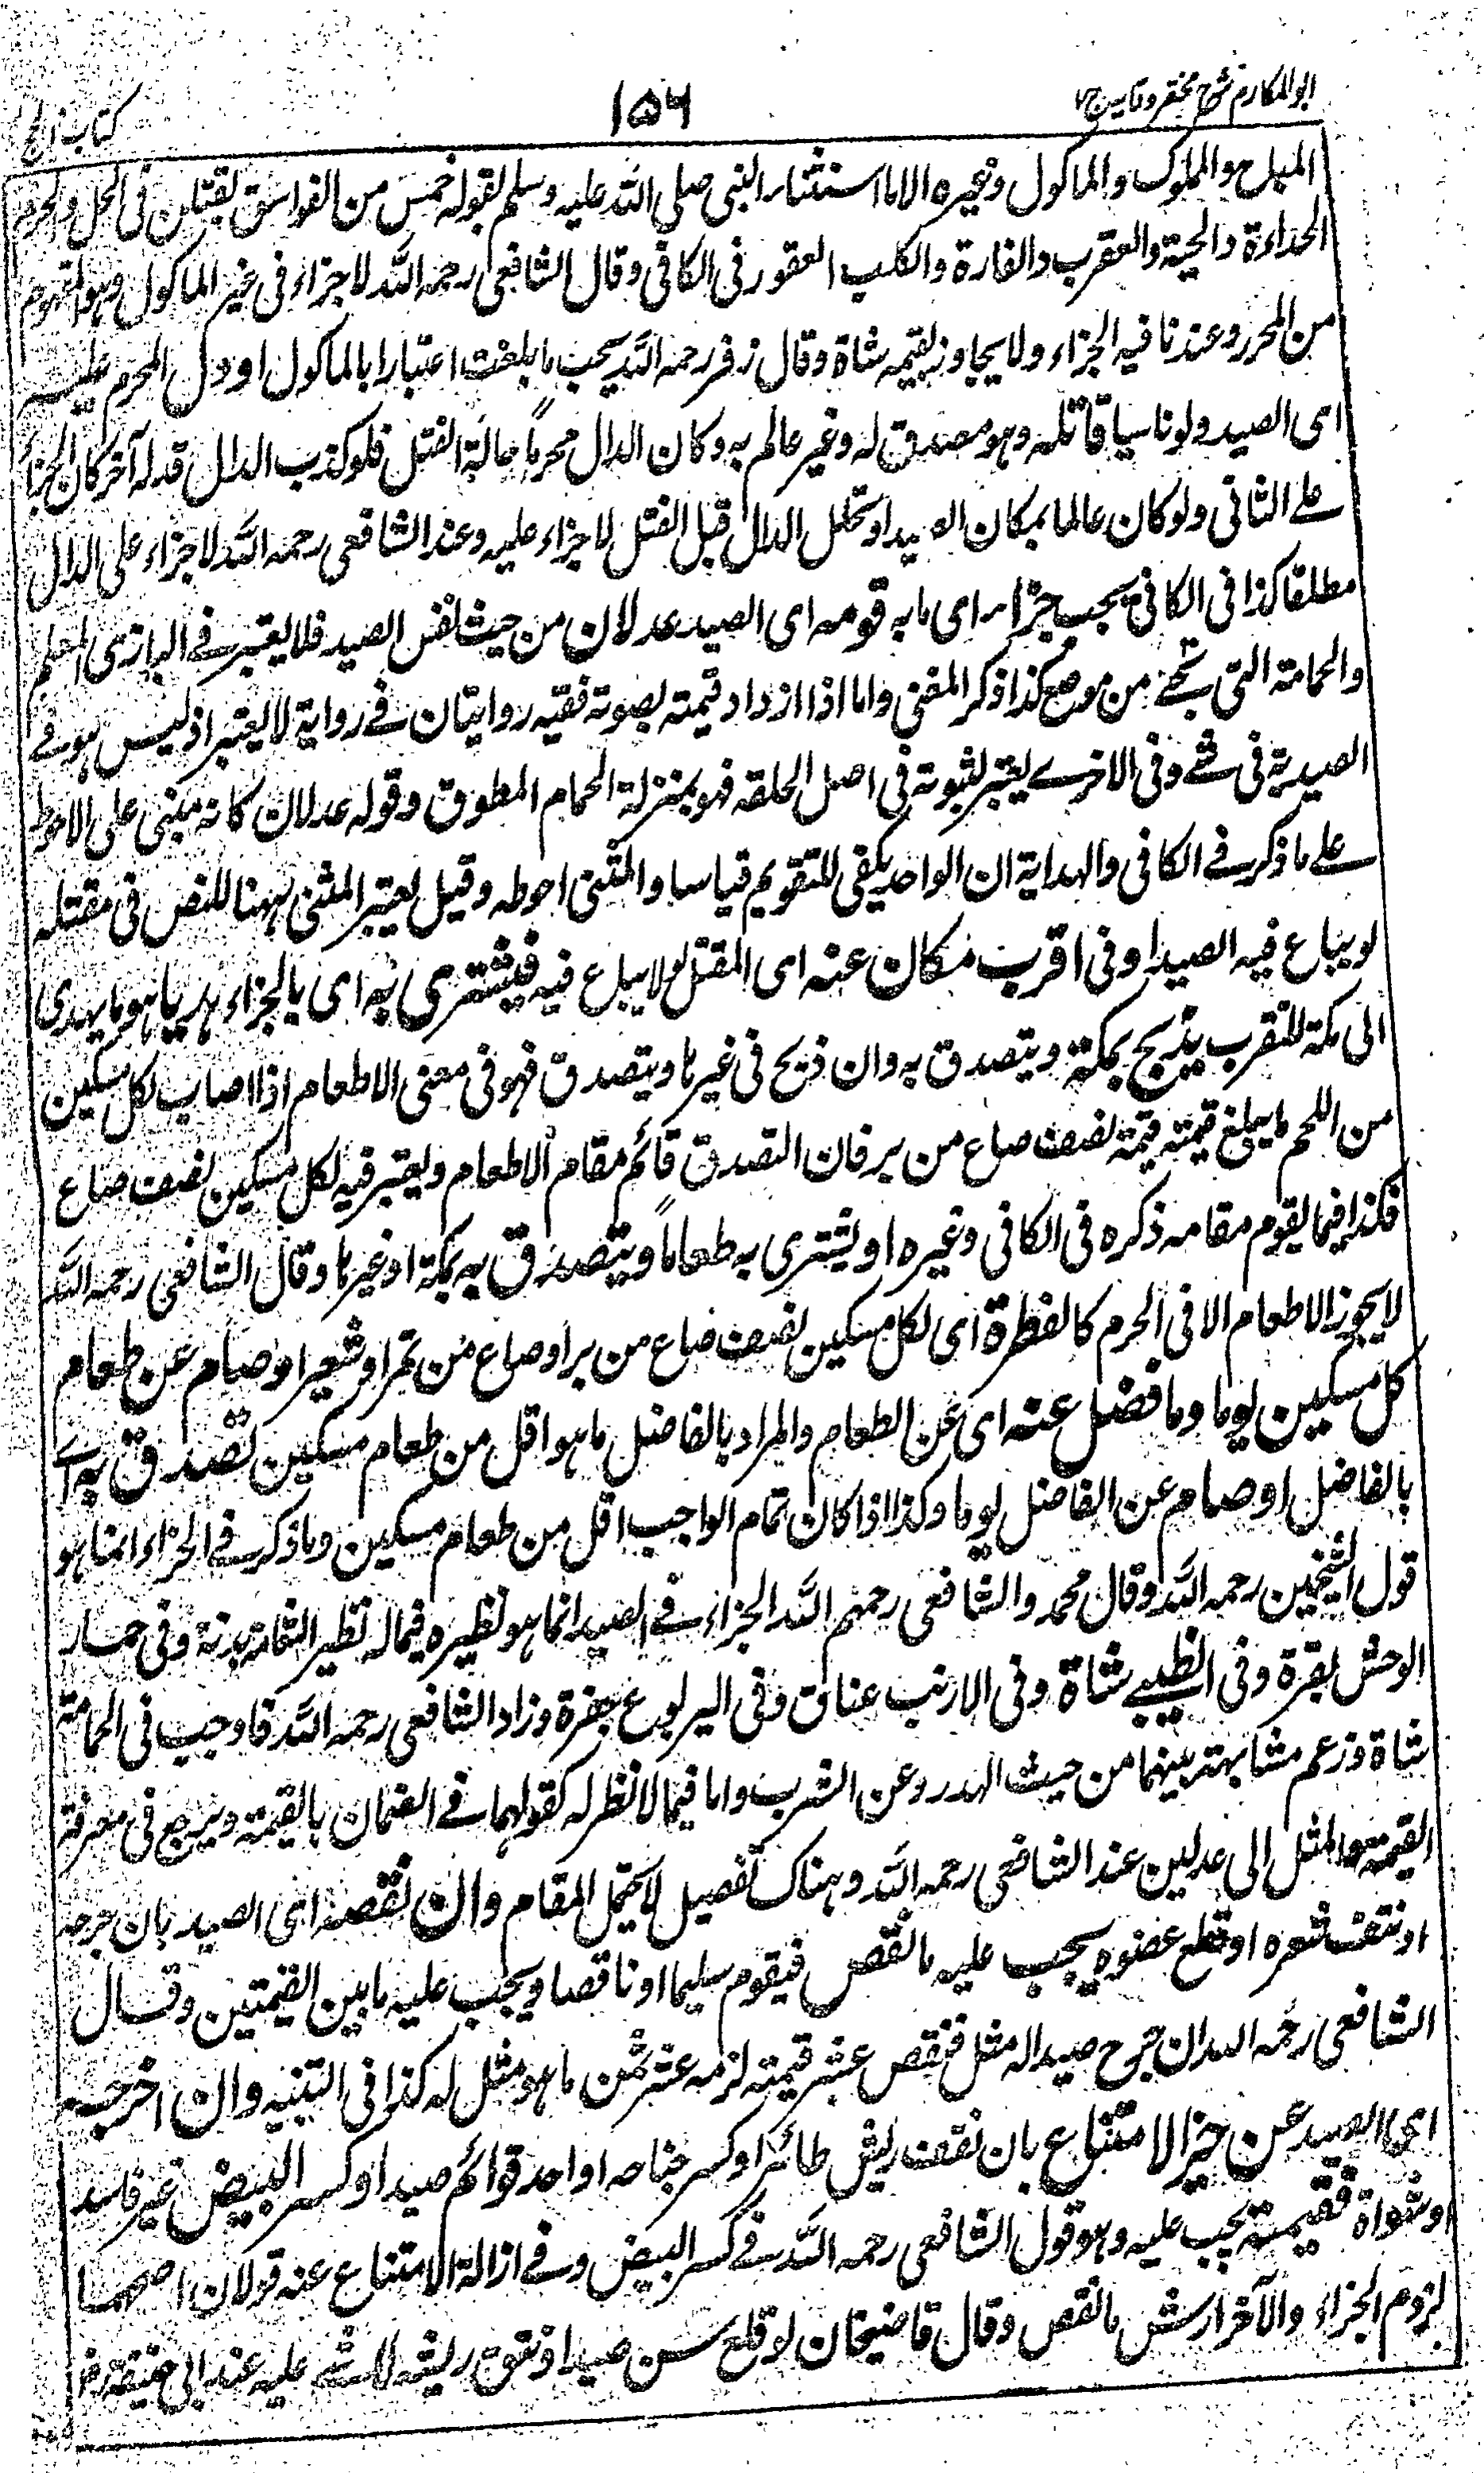 ابو المكارم شرح مختصر وقايه ج ١
١٥٦
كتاب الحج
المباح والمملوك والماكول وغيره الا ما استثناء النبي صلى الله عليه وسلم لقوله خمس من الفواسق يقتلن في الحل والحرم
الحداءة والحية والعقرب والفارة والكلب العقور في الكافي وقال الشافعي رحمه الله لا جزاء في غير الماكول وهو المفهوم
من المحرر وعندنا فيه الجزاء ولا يجاوز بقيمه شاة وقال زفر رحمه الله يجب ما بلغت اعتبارا بالماكول او دل المحرم عليه
اى الصيد ولو ناسيا قاتله وهو مصدق له وغير عالم به وكان الدال محرماً حالة القتل فلو كذب الدال فدله آخر كان الجزاء
على الثاني ولو كان عالما بمكان الصيد او تحلل الدال قبل القتل لا جزاء عليه وعند الشافعي رحمه الله لا جزاء على الدال
مطلقا كذا في الكافي يجب جزاءه اى ما به قومه اى الصيد عدلان من حيث نفس الصيد فلا يعتبر في البازى المعلم
والحمامة التي تجئ من موضع كذا ذكر المفتى واما اذا ازداد قيمته بصوته ففيه روايتان في رواية لا يعتبر اذ ليس هو في
الصيدية في شئ وفي الاخرى يعتبر لثبوته في اصل الخلقه فهو بمنزلة الحمام المطوق وقوله عدلان كانه مبنى على الاحوط
على ما ذكر في الكافي والهداية ان الواحد يكفى للتقويم قياسا والمثنى احوطه وقيل يعتبر المثنى ههنا للنص في مقتله
لو يباع فيه الصيد او في اقرب مكان عنه اى المقتل لو لا يباع فيه فيشترى به اى بالجزاء هديا هو ما يهدى
الى مكة للتقرب يذبح بمكة ويتصدق به وان ذبح في غيرها ويتصدق فهو في معنى الاطعام اذا اصاب لكل مسكين
من اللحم ما يبلغ قيمته قيمة نصف صاع من بر فان التصدق قائم مقام الاطعام ويعتبر فيه لكل مسكين نصف صاع
فكذا فيما يقوم مقامه ذكره في الكافي وغيره او يشترى به طعاماً ويتصدق به بمكة او غيرها وقال الشافعي رحمه الله
لا يجوز الاطعام الا في الحرم كالفطرة اى لكل مسكين نصف صاع من بر او صاع من تمر او شعير او صيام عن طعام
كل مسكين يوما وما فضل عنه اى عن الطعام والمراد بالفاضل ما هو اقل من طعام مسكين تصدق به اى
بالفاضل او صام عن الفاضل يوما وكذا اذا كان تمام الواجب اقل من طعام مسكين وما ذكر في الجزاء انما هو
قول الشيخين رحمه الله وقال محمد والشافعي رحمهم الله الجزاء في الصيد انما هو نظيره فيما له نظير النعامة بدنة وفي حمار
الوحش بقرة وفي الظبي شاة وفي الارنب عناق وفي اليربوع جفرة وزاد الشافعي رحمه الله فاوجب في الحمامة
شاة وزعم مشابهة بينهما من حيث الهدر وعن الشرب واما فيما لا نظر له كقولهما في الضمان بالقيمة ويرجع في معرفة
القيمة والمثل الى عدلين عند الشافعي رحمه الله وهناك تفصيل لا يحتمل المقام وان نقصه اى الصيد بان جرحه
او نتف شعره او قطع عضوه يجب عليه ما نقص فيقوم سليما او ناقصا ويجب عليه ما بين القيمتين وقال
الشافعي رحمه الله ان جرح صيدا له مثل فنقص عشر قيمته لزمه عشر ثمن ما هو مثل له كذا في التنبيه وان اخرجه
اى الصيد عن حيز الامتناع بان نقف ريش طائر او كسر جناحه او احد قوائم صيد او كسر البيض غير فاسد
او شواة فقيمته يجب عليه وهو قول الشافعي رحمه الله في كسر البيض وفي ازالة الامتناع عنه قولان اصحهما
لزوم الجزاء والآخر ارش ما نقص وقال قاضيخان لو قلع سن صيد او نتف ريشه لا شئ عليه عند ابى حنيفة رح